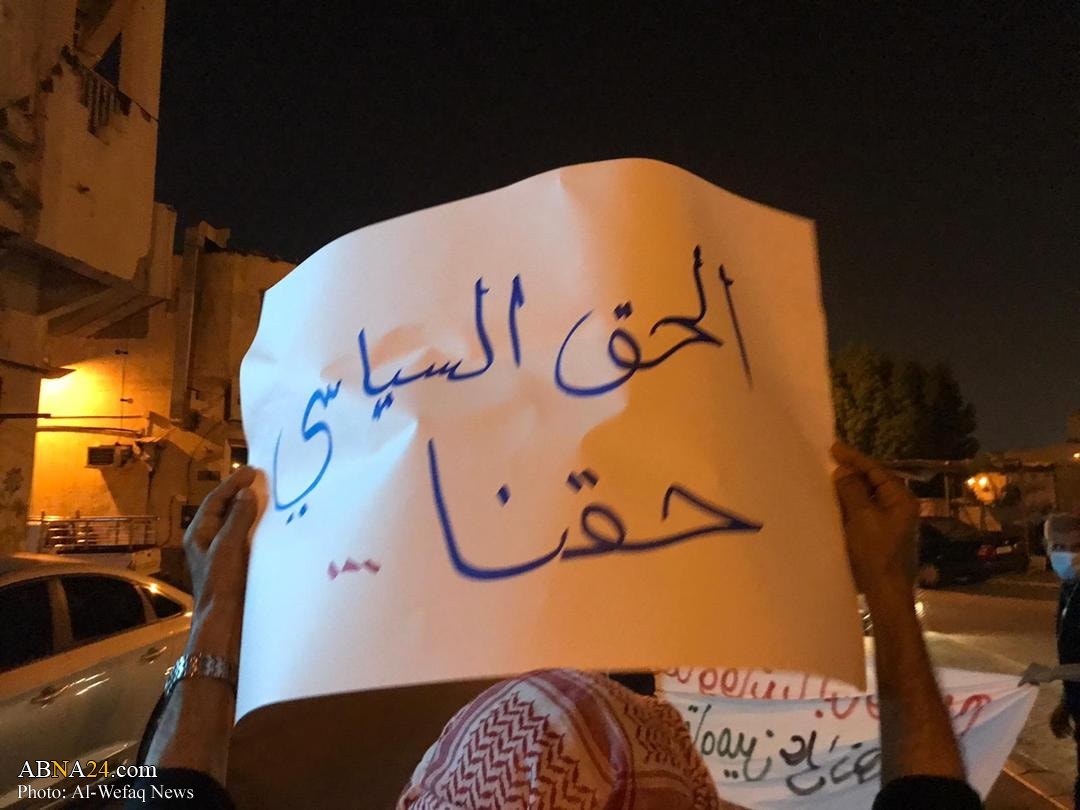 الحق السياسي
حقنا ...
ABNA24.com
Photo: Al-Wefaq News